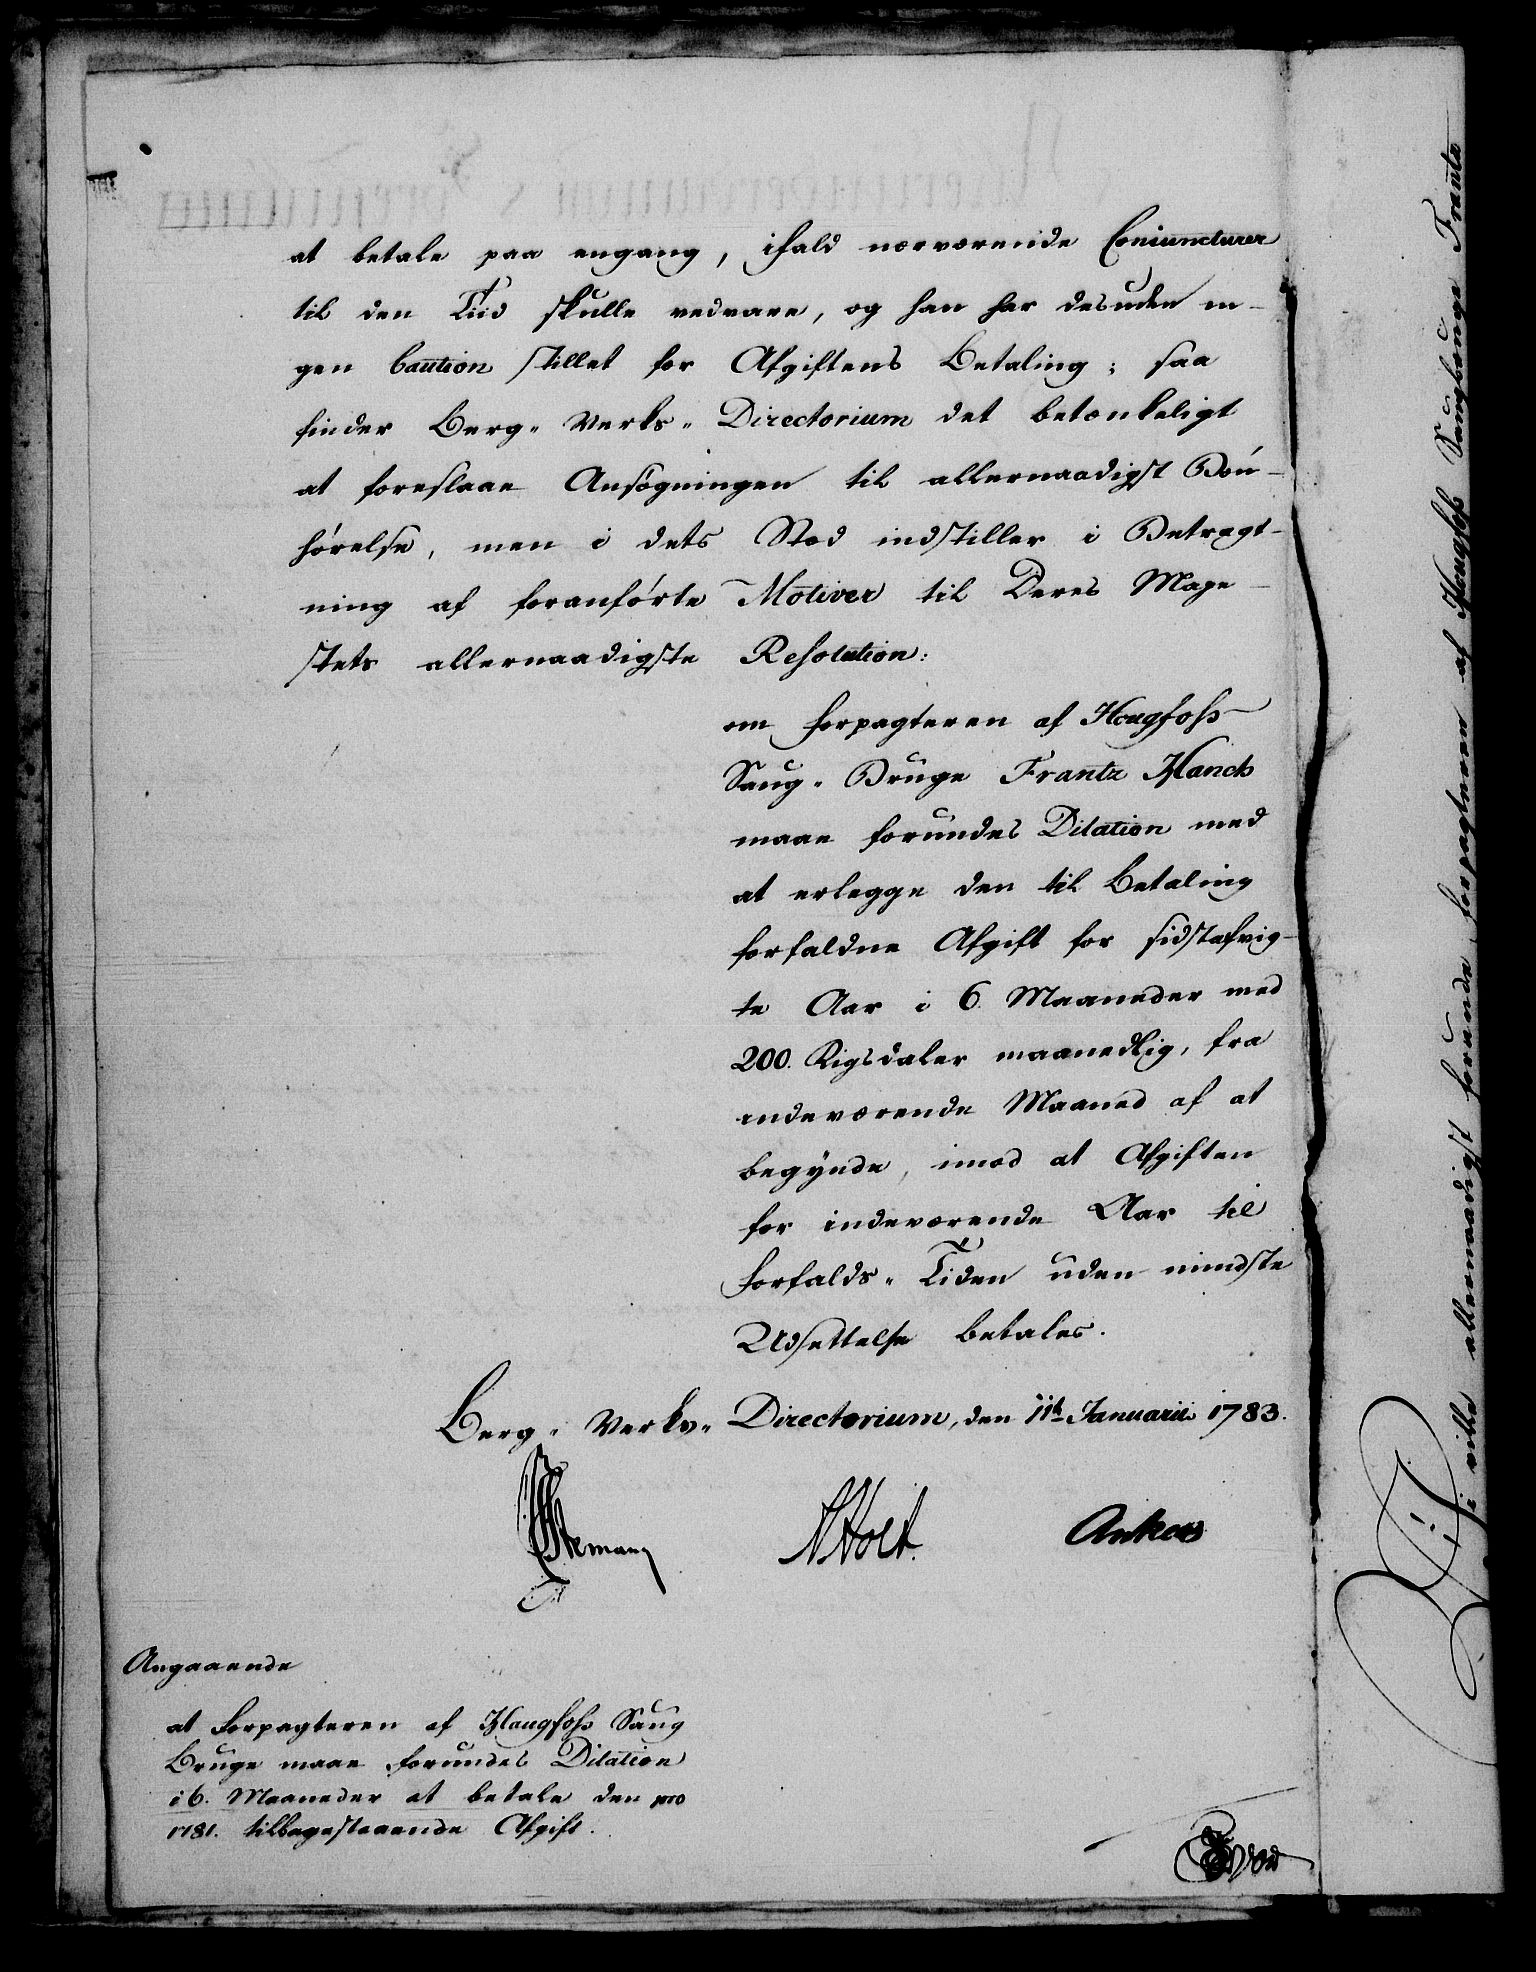 at betale paa engang, ifald nærværende Coniuncturer
til den Tiid skulle vedvare, og han har desuden in-
gen Caution stillet for Afgiftens Betaling; saa
finder Berg- Verks- Directorium det betænkeligt
at foreslaae Ansøgningen til allernaadigst Bøn-
hørelse, men i dets Sted indstiller i Betragt-
ning af foranførte Motiver til Deres Maje-
stets allernaadigste Resolution:
om Forpagteren af Hougfoss
Saug- Bruge Frantz Hanck
maae forundes Dilation med
at erlegge den til Betaling
forfaldne Afgift for sidstafvig-
te Aar i 6 Maaneder med
200. Rigsdaler maanedlig, fra
indeværende Maaned af at
begynde, imod at Afgiften
for indeværende Aar til
Forfalds- Tiden uden mindste
Udsettelse betales.
Berg- Verks- Directorium, den 11te Januarii 1783.
Stemann Holt. Anker
Angaaende
at Forpagteren af Haugfoss Saug
Bruge maae forundes Dilation
i 6. Maaneder at betale den pro
1781. tilbagestaaende Afgift.
Vi ville allernaadigst forunde forpagteren af Hougfoss Saugbruge Frantz